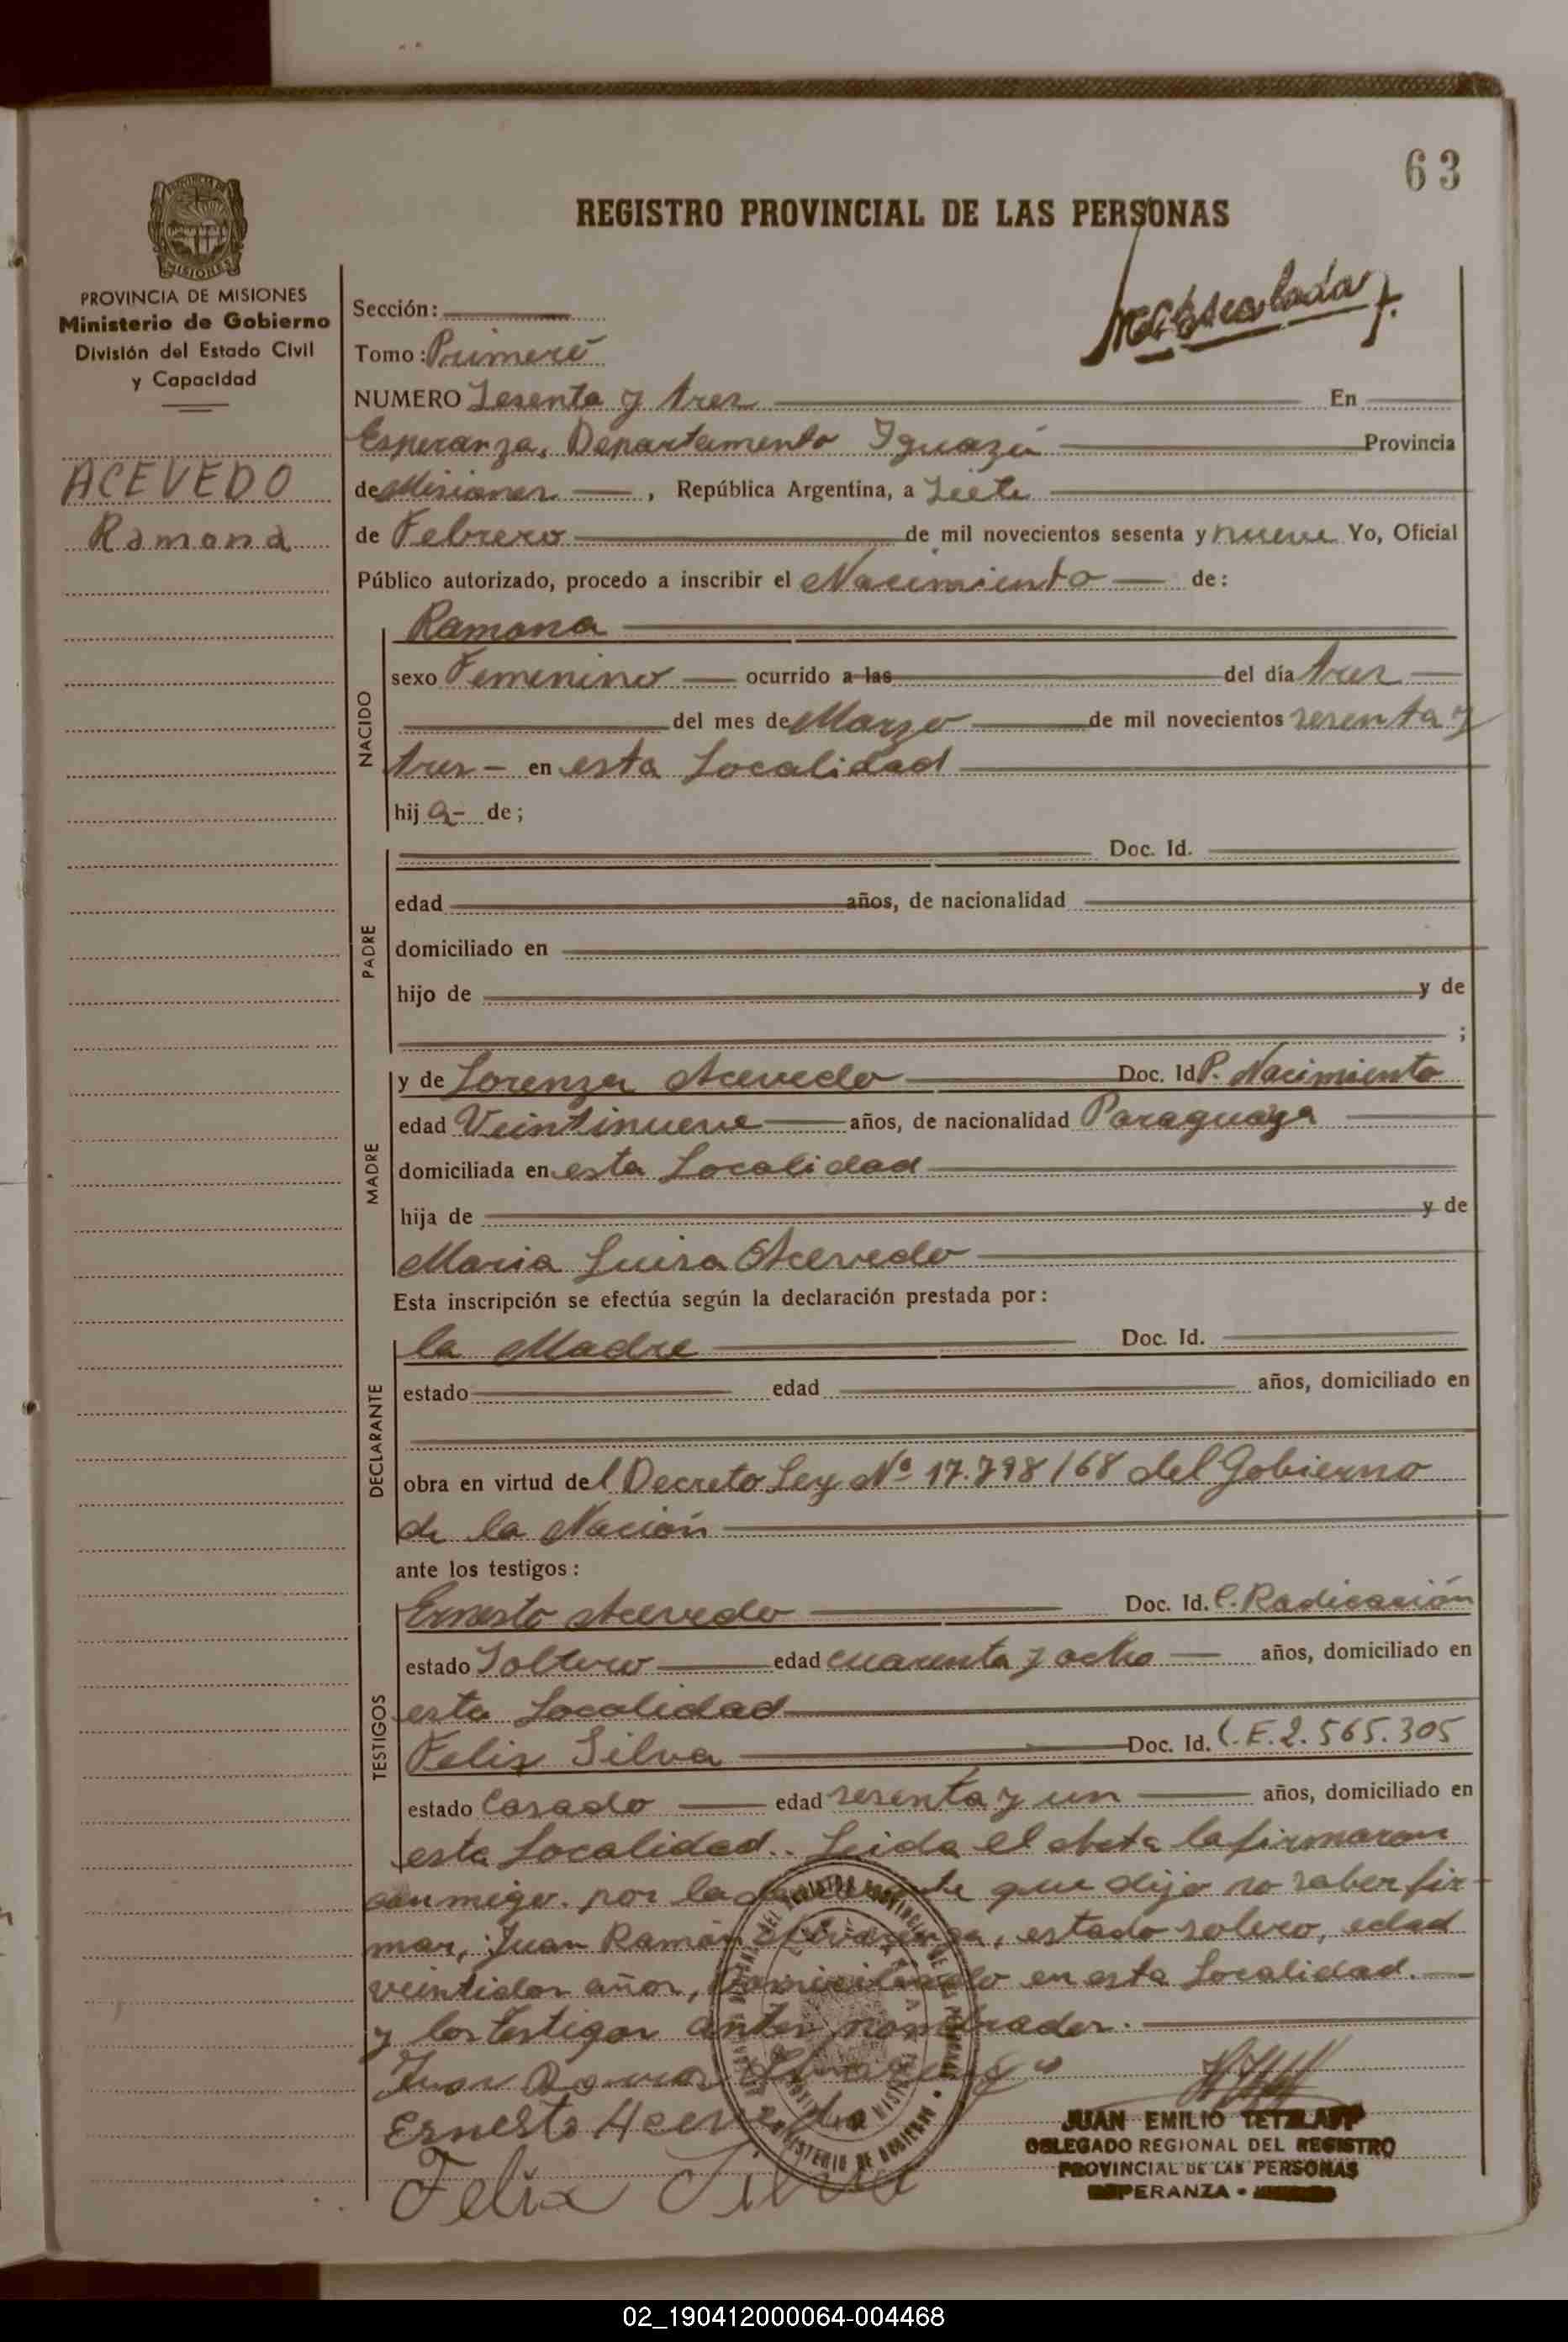 63
REGISTRO PROVINCIAL DE LAS PERSONAS
PROVINCIA DE MISIONES
Ministerio de Gobierno
División del Estado Civil
y Capacidad
ACEVEDO
Ramona
Sección:
Tomo: Primero
NUMERO Sesenta y tres En
Esperanza, Departamento Iguazú Provincia
de Misiones, República Argentina, a Siete
de Febrero de mil novecientos sesenta y nueve Yo, Oficial
Público autorizado, procedo a inscribir el Nacimiento de:
Ramona
NACIDO
sexo Femenino ocurrido a las del día tres
del mes de Marzo de mil novecientos sesenta y
tres - en esta Localidad
hij a- de;
PADRE
Doc. Id.
edad años, de nacionalidad
domiciliado en
hijo de y de
;
MADRE
y de Lorenza Acevedo Doc. Id P. Nacimiento
edad Veintinueve años, de nacionalidad Paraguaya
domiciliada en esta Localidad
hija de y de
Maria Luisa Acevedo
Esta inscripción se efectúa según la declaración prestada por:
DECLARANTE
la Madre Doc. Id.
estado edad años, domiciliado en
obra en virtud del Decreto Ley Nº 17.798/68 del Gobierno
de la Nación
ante los testigos:
TESTIGOS
Ernesto Acevedo Doc. Id. C. Radicación
estado Soltero edad cuarenta y ocho años, domiciliado en
esta Localidad
Felix Silva Doc. Id. L.E. 2.565.305
estado Casado edad sesenta y un años, domiciliado en
esta Localidad.. Leida el Acta la firmaron
conmigo. por la que dijo no saber fir-
mar, Juan Ramón, estado soltero, edad
veintidos años, domiciliado en esta Localidad.
y los testigos antes nombrados.
Juan Ramon
Ernesto Acevedo
Felix Silva
JUAN EMILIO TETZLAFF
DELEGADO REGIONAL DEL REGISTRO
PROVINCIAL DE LAS PERSONAS
ESPERANZA -
02_190412000064-004468